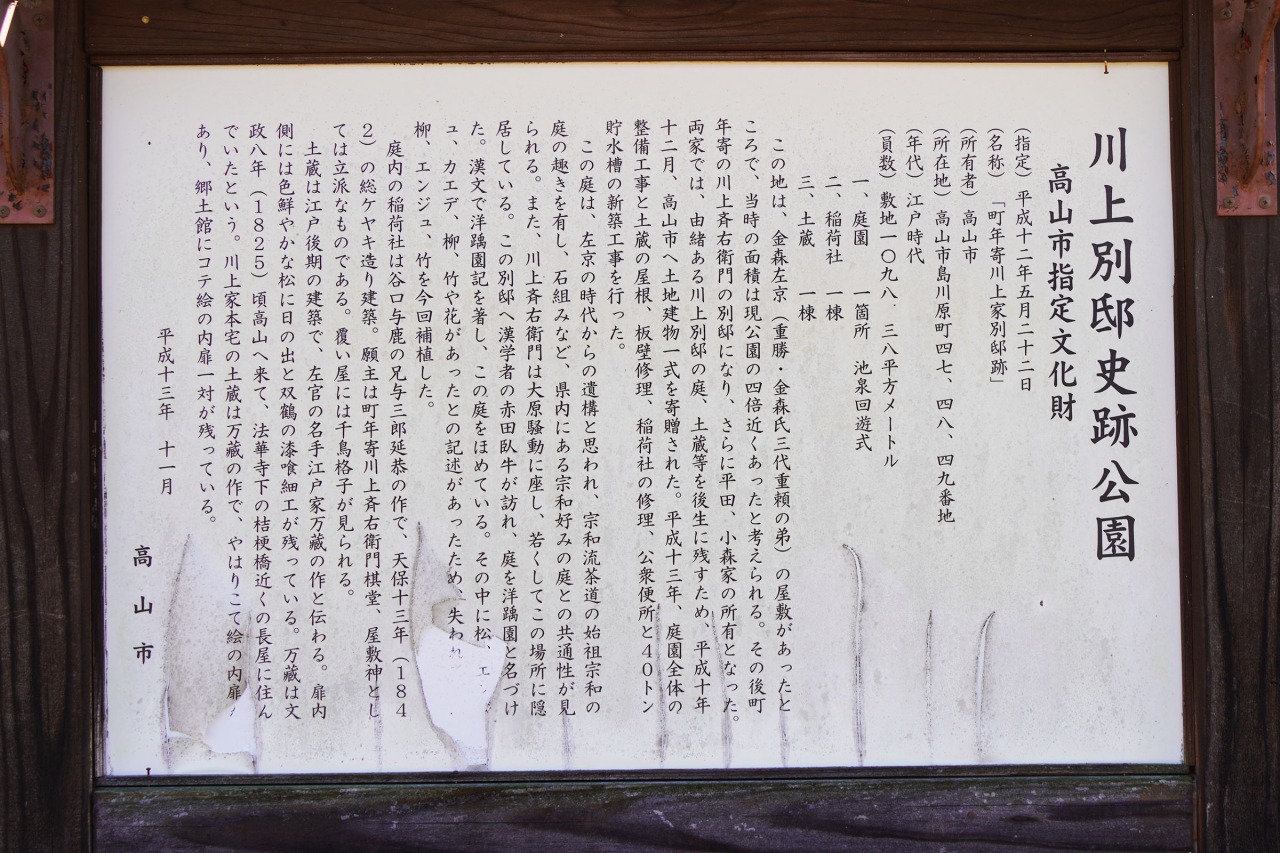 川上別邸史跡公園
高山市指定文化財
（指定）平成十二年五月二十二日
（名称）「町年寄川上家別邸跡」
（所有者）高山市
（所在地）高山市島川原町四七、四八、四九番地
（年代）江戸時代
（員数）敷地一〇九八、三八平方メートル
一、庭園　一箇所　池泉回遊式
二、稲荷社　一棟
三、土蔵　一棟
この地は、金森左京（重勝・金森氏三代重頼の弟）の屋敷があったと
ころで、当時の面積は現公園の四倍近くあったと考えられる。その後町
年寄の川上斉右衛門の別邸になり、さらに平田、小森家の所有となった。
両家では、由緒ある川上別邸の庭、土蔵等を後生に残すため、平成十年
十二月、高山市へ土地建物一式を寄贈された。平成十三年、庭園全体の
整備工事と土蔵の屋根、板壁修理、稲荷社の修理、公衆便所と４０トン
貯水槽の新築工事を行った。
この庭は、左京の時代からの遺構と思われ、宗和流茶道の始祖宗和の
庭の趣きを有し、石組みなど、県内にある宗和好みの庭との共通性が見
られる。また、川上斉右衛門は大原騒動に座し、若くしてこの場所に隠
居している。この別邸へ漢学者の赤田臥牛が訪れ、庭を洋踽園と名づけ
た。漢文で洋踽園記を著し、この庭をほめている。その中に松、エ
ュ、カエデ、柳、竹や花があったとの記述があったため、失われ
柳、エンジュ、竹を今回補植した。
庭内の稲荷社は谷口与鹿の兄与三郎延恭の作で、天保十三年（１８４
２）の総ケヤキ造り建築。願主は町年寄川上斉右衛門棋堂、屋敷神とし
ては立派なものである。覆い屋には千鳥格子が見られる。
土蔵は江戸後期の建築で、左官の名手江戸家万蔵の作と伝わる。扉内
側には色鮮やかな松に日の出と双鶴の漆喰細工が残っている。万蔵は文
政八年（１８２５）頃高山へ来て、法華寺下の桔梗橋近くの長屋に住ん
でいたという。川上家本宅の土蔵は万蔵の作で、やはりこて絵の内扉
あり、郷土館にコテ絵の内扉一対が残っている。
平成十三年　十一月
高山市